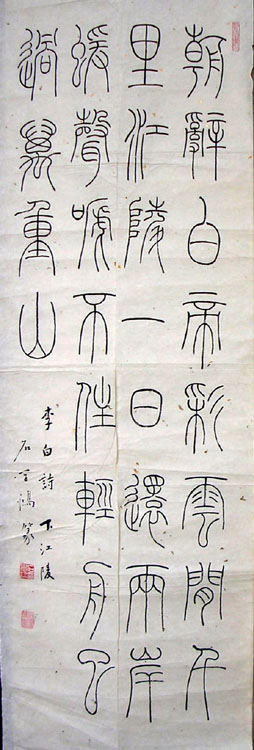 朝辭白帝彩雲間千
里江陵一日還兩岸
蝯聲嗁不住輕舟已
過萬重山
李白詩 下江陵
石鴻篆